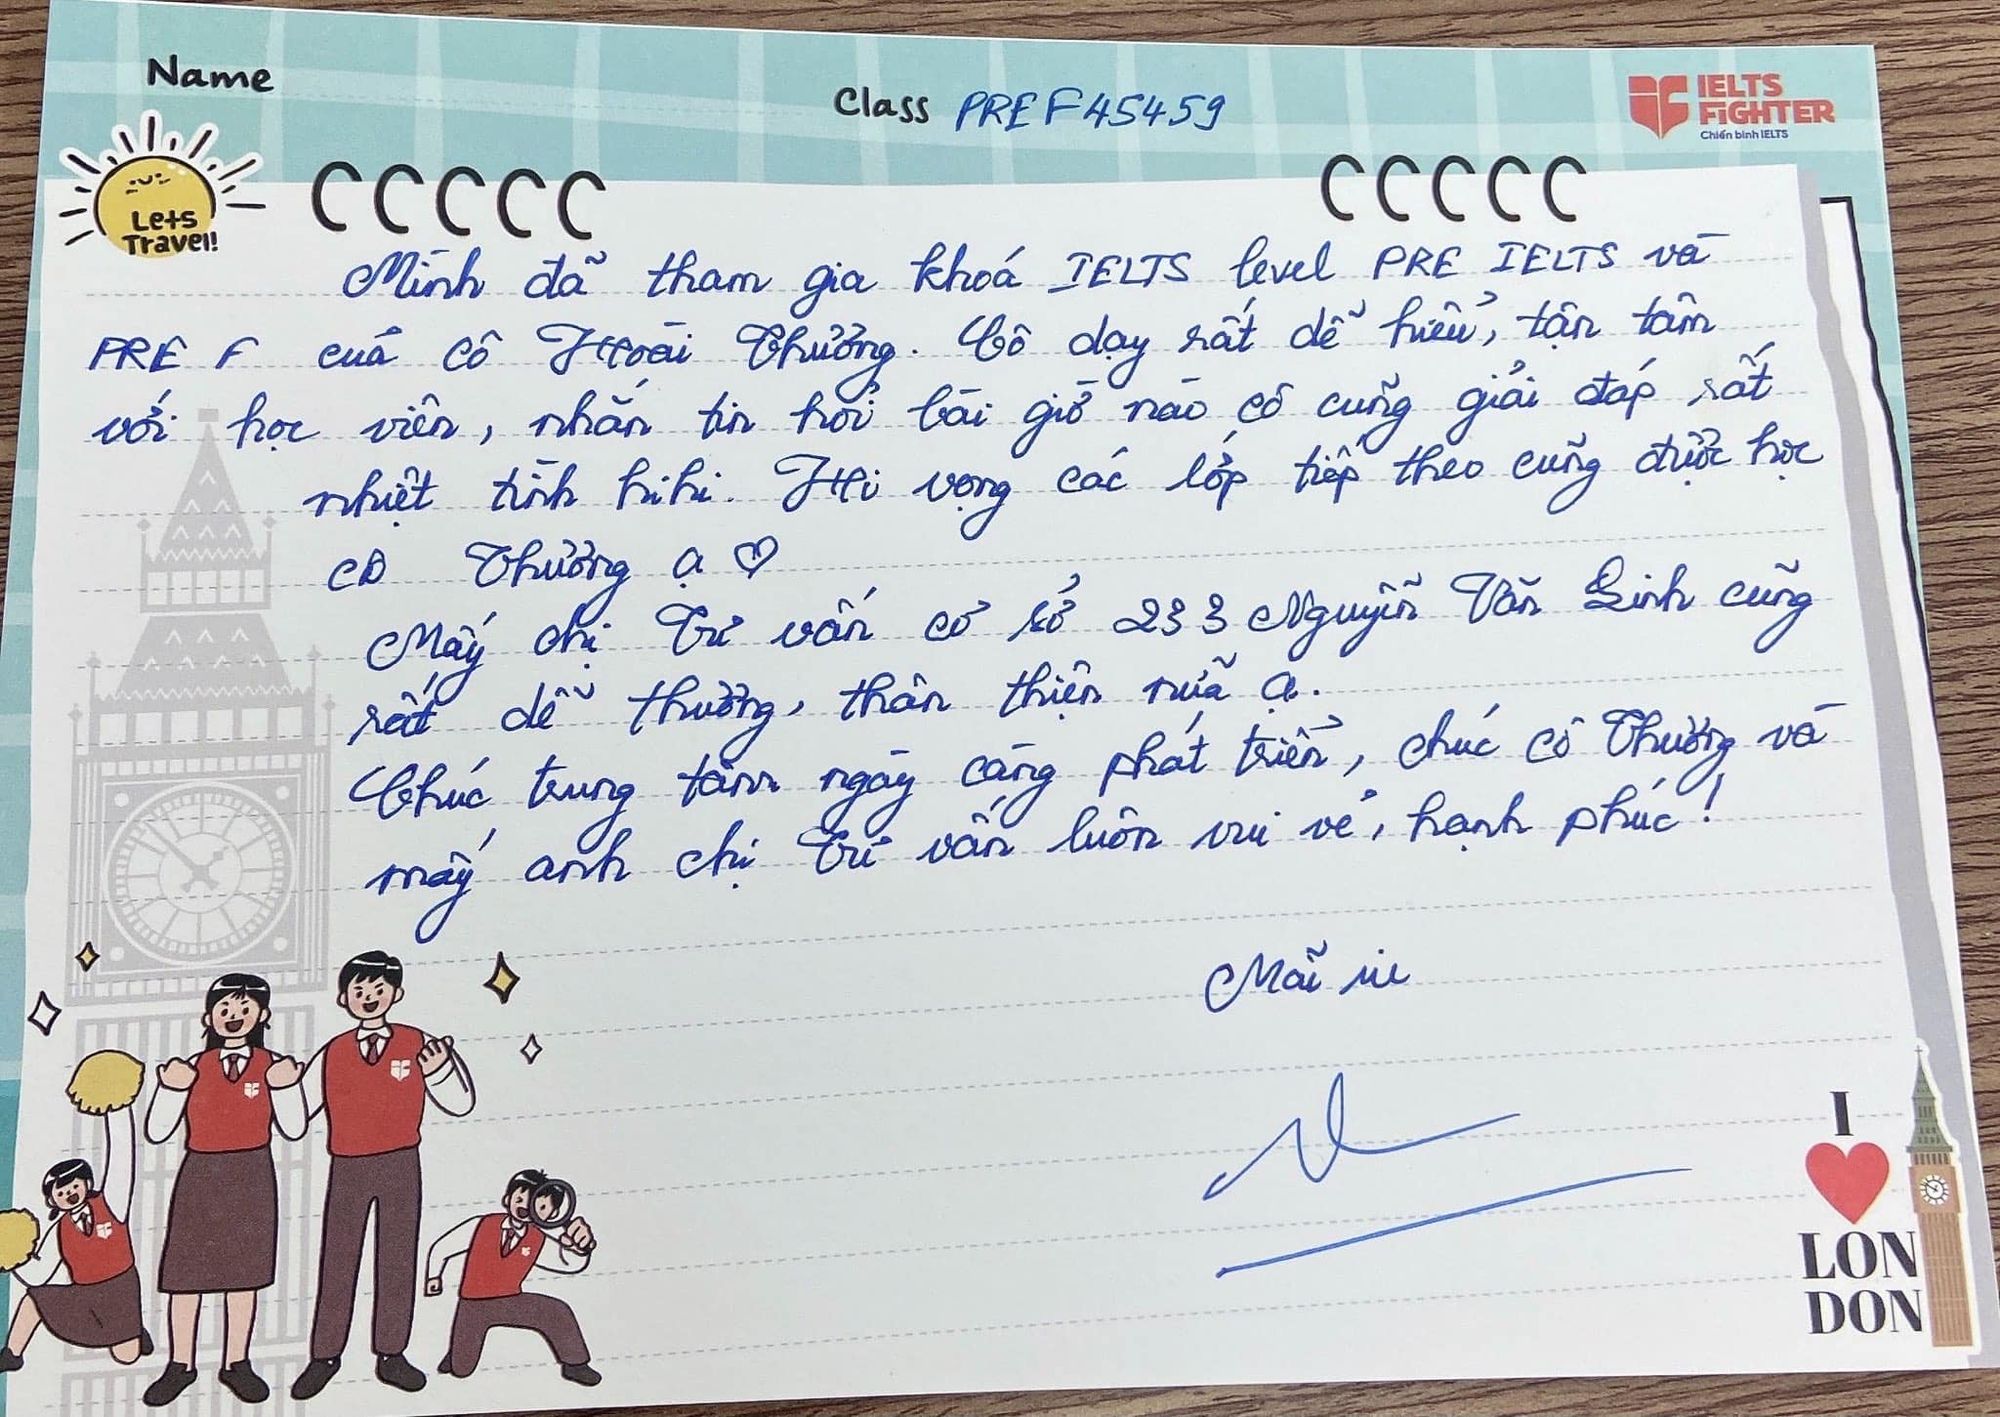 Name
Class PRE F45459
IELTS
FIGHTER
Chiến binh IELTS
Lets
Travel!
Mình đã tham gia khoá IELTS level PRE IELTS và
PRE F của cô Hoài Thương. Cô dạy rất dễ hiểu, tận tâm
với học viên, nhắn tin hỏi bài giờ nào cô cũng giải đáp rất
nhiệt tình hihi. Hi vọng các lớp tiếp theo cũng được học
cô Thương ạ ♡
Mấy chị Tư vấn cơ sở 233 Nguyễn Văn Linh cũng
rất dễ thương, thân thiện nữa ạ.
Chúc trung tâm ngày càng phát triển, chúc cô Thương và
mấy anh chị Tư vấn luôn vui vẻ, hạnh phúc!
Mãi iu
I
LON
DON